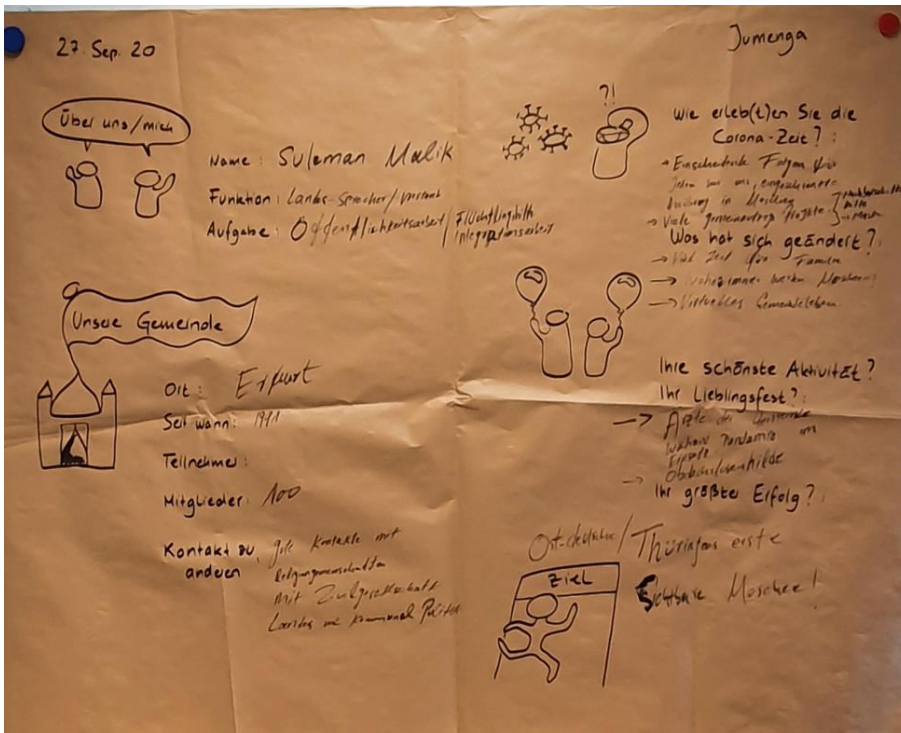 27. Sep. 20
Jumenga
Über uns/mich
Name: Suleman Malik
Funktion: Landes-Sprecher/
Aufgabe: Öffentlichkeitsarbeit / Flüchtlingshilfe
Integrationsarbeit
Unsere Gemeinde
Ort: Erfurt
Seit wann: 1991
Teilnehmer:
Mitglieder: 100
Kontakt zu anderen: gute Kontakte mit
Religionsgemeinschaften
mit Zivilgesellschaft
und Kommunal Politik
?!
Wie erleb(t)en Sie die
Corona-Zeit?:
→ Einschneidende Folgen für
jeden von uns, eingeschränkte
in Moschee
→ Viele Projekte
Was hat sich geändert?:
→ Viel Zeit für Familie
→ Wohnzimmer werden
→ Virtuelles Gemeindeleben
Ihre schönste Aktivität?
Ihr Lieblingsfest?:
→ Ärzte der Gemeinde
während Pandemie im
Einsatz
→ Obdachlosenhilfe
Ihr größter Erfolg?:
Thüringens erste
Sichtbare Moschee!
Ziel